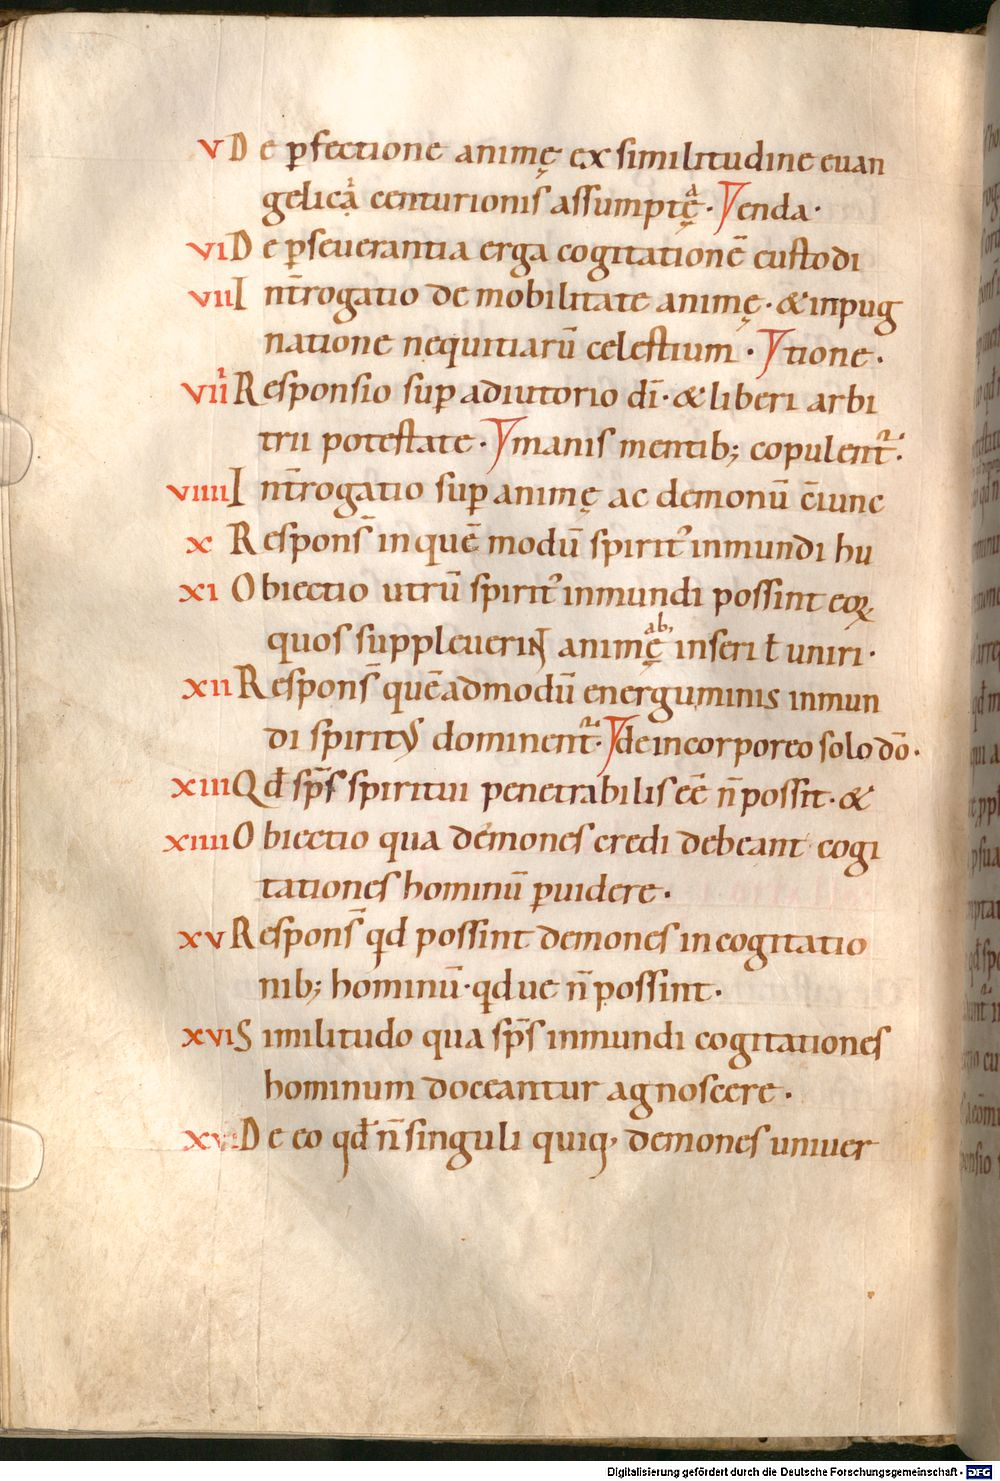 V De p̄fectione animę ex similitudine euan
gelica centurionis assumptę · enda ·
VI De p̄seuerantia erga cogitationē custodi
VII Int̄rogatio de mobilitate animę · & inpug
natione nequitiarū celestium · tione ·
VIII Responsio sup̄ adiutorio dī · & liberi arbi
trii potestate · manis mentib; copulent᷑ ·
VIIII Int̄rogatio sup̄ animę ac demonū c̄iunc
X Respons̄ in quē modū spiritꝰ inmundi hu
XI Obiectio utrū spiritꝰ inmundi possint eoꝝ
quos suppleuerint animę ab, inseri ł uniri ·
XII Respons̄ quēadmodū energuminis inmun
di spiritꝰ dominent᷑ · de incorporeo solo dō ·
XIII Qđ sp̄s spiritui penetrabilis eē n̄ possit · &
XIIII Obiectio qua demones credi debeant cogi
tationes hominū p̄uidere ·
XV Respons̄ qđ possint demones in cogitatio
nib; hominū · qđue n̄ possint ·
XVI Similitudo qua sp̄s inmundi cogitationes
hominum doceantur agnoscere ·
XVII De eo qđ n̄ singuli quiq, demones uniuer
Digitalisierung gefördert durch die Deutsche Forschungsgemeinschaft - DFG